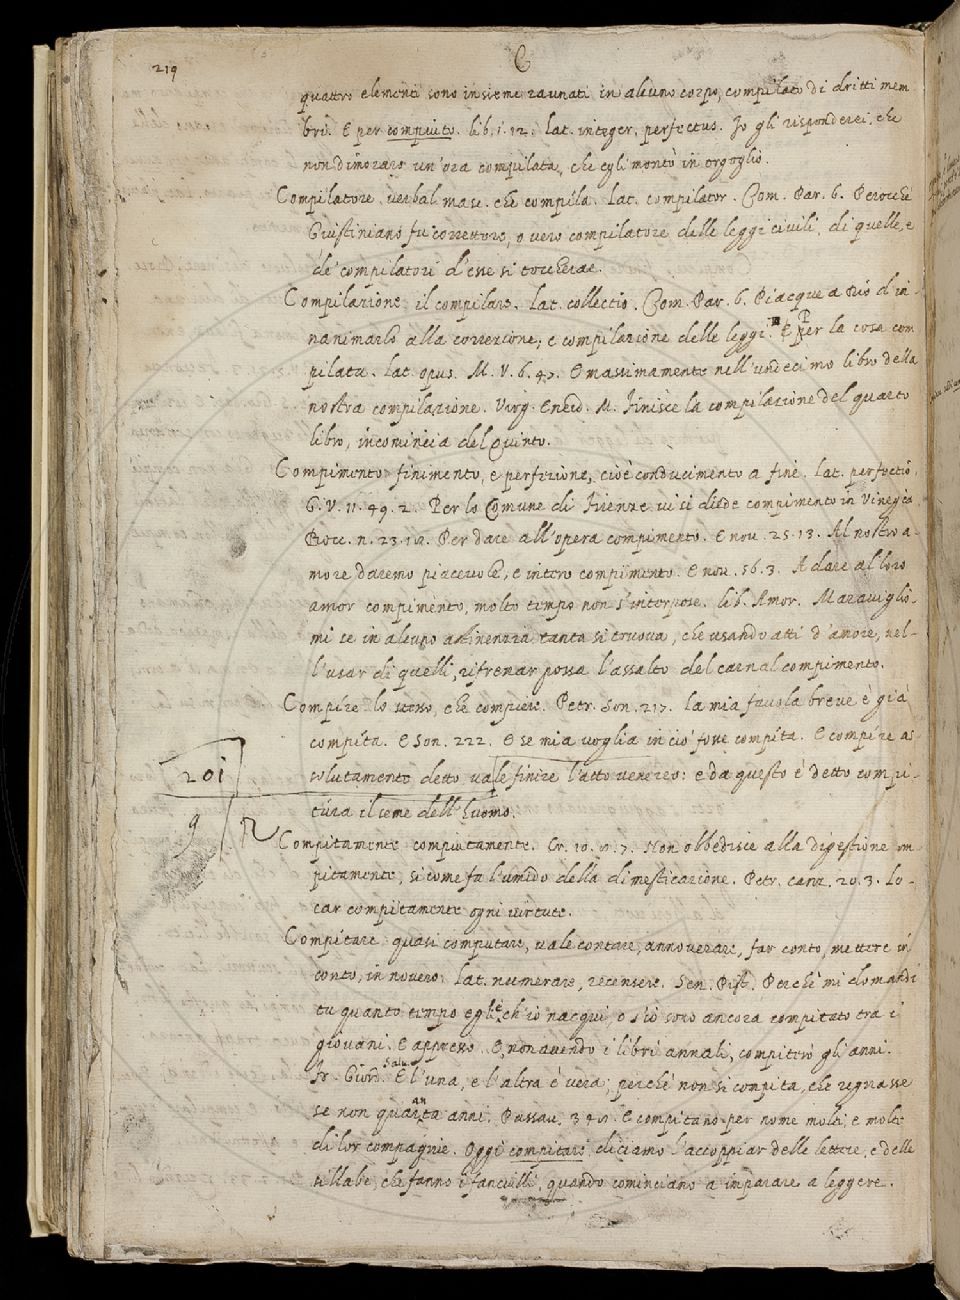 219
C
quattro elementi sono insieme raunati in alcuno corpo, compilato di dritti mem
bri. E per compiuto. lib. 1. 12. Lat. integer, perfectus. Io gli risponderei, che
non dimoraro un'ora compilata, che egli montò in orgoglio.
Compilatore verbal masc. che compila. Lat. compilator. Com. Par. 6. Perocchè
Giustiniano fu correttore, o vero compilatore delle leggi civili, di quelle, e
de' compilatori d'esse si toccherae.
Compilazione il compilare. Lat. collectio. Com. Par. 6. Piacque a Dio d'in-
nanimarlo alla correzione, e compilazione delle leggi. E per la cosa com
pilata. Lat. opus. M. V. 6. 47. E massimamente nell'undecimo libro della
nostra compilazione. Virg. Eneid. M. Finisce la compilazione del quarto
libro, incomincia del Quinto.
Compimento finimento, e perfezione, cioè conducimento a fine. Lat. perfectio.
G. V. 11. 49. 2. Per lo Comune di Firenze vi si diede compimento in Vinegia
Bocc. n. 23. 19. Per dare all'opera compimento. E nov. 25. 13. Al nostro a-
more daremo piacevole, e intero compimento. E nov. 56. 3. A dare al loro
amor compimento, molto tempo non s'interpose. lib. Amor. Maraviglio-
mi se in alcuno astinenza tanta si truova, che usando atti d'amore, nel-
l'usar di quelli, rifrenar possa l'assalto del carnal compimento.
Compire lo stesso, che compiere. Petr. Son. 217. La mia favola breve è già
compita. E Son. 222. E se mia voglia in ciò fosse compita. E compire as
201
solutamente detto vale finire l'atto venereo: e da questo è detto compi-
tura il seme dell'huomo.
9
Compitamente compiutamente. Cr. 10. 7. Non obbedisce alla digestione om
pitamente, si come fa l'umido della dimesticazione. Petr. canz. 20. 3. Lo-
car compitamente ogni virtute.
Compitare quasi computare, vale contare, annoverare, far conto, mettere in
conto, in novero. Lat. numerare, recensere. Sen. Pist. Perchè mi domandi
tu quanto tempo egli è ch'io nacqui, o s'io sono ancora compitato tra i
giovani. E appresso. E, non avendo i libri annali, compiterò gli anni.
Fr. Giord. Salv. E l'una, e l'altra è vera; perchè non si compita, che regnasse
se non quaranta anni. Passav. 340. E compitano per nome molti, e molti
di lor compagnie. Oggi compitare diciamo l'accoppiar delle lettere, e delle
sillabe, che fanno i fanciulli, quando cominciano a imparare a leggere.